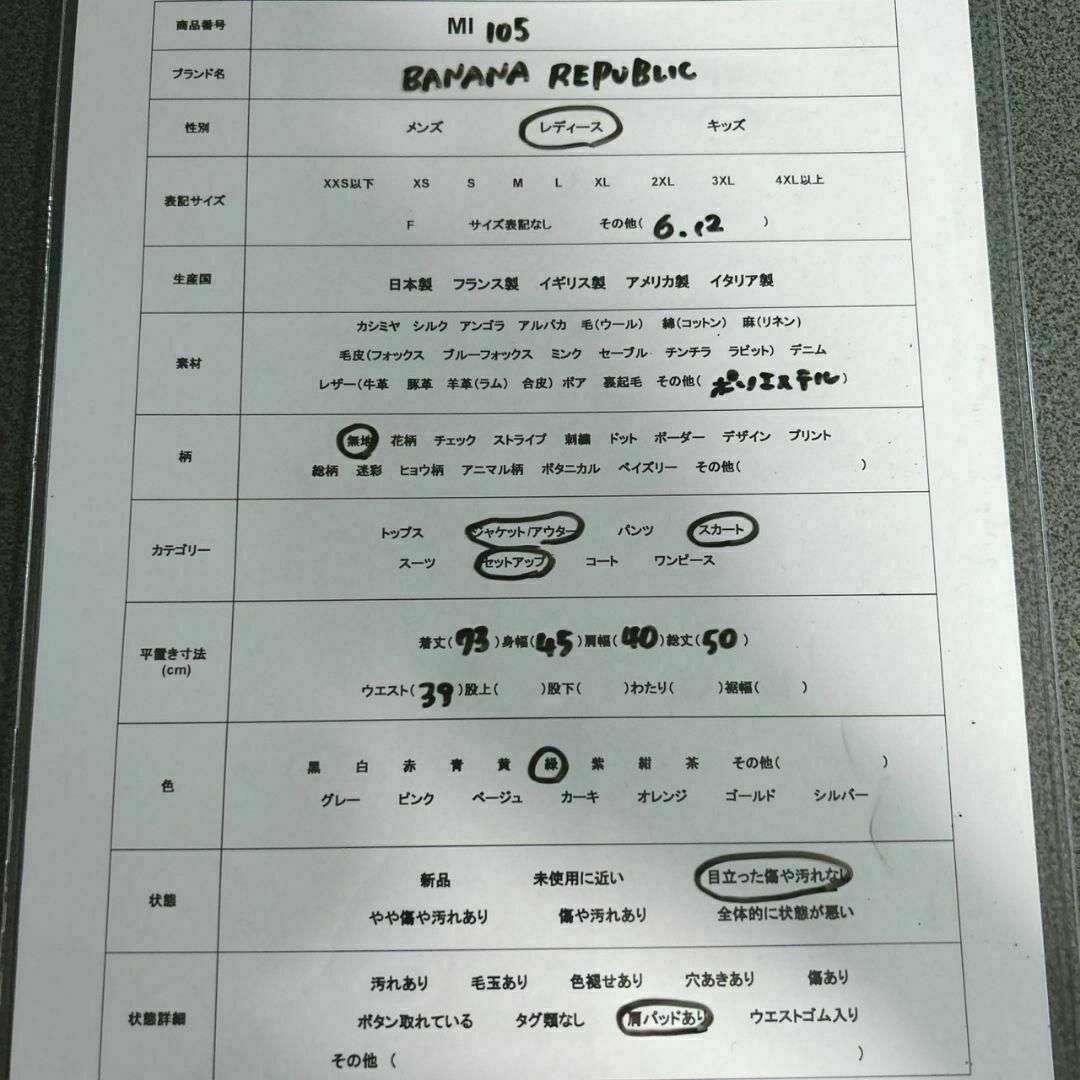 商品番号 MI 105
ブランド名 BANANA REPUBLIC
性別 メンズ レディース キッズ
XXS以下 XS S M L XL 2XL 3XL 4XL以上
表記サイズ
F サイズ表記なし その他( 6.12 )
生産国 日本製 フランス製 イギリス製 アメリカ製 イタリア製
カシミヤ シルク アンゴラ アルパカ 毛(ウール) 綿(コットン) 麻(リネン)
素材 毛皮(フォックス ブルーフォックス ミンク セーブル チンチラ ラビット) デニム
レザー(牛革 豚革 羊革(ラム) 合皮) ボア 裏起毛 その他( ポリエステル )
無地 花柄 チェック ストライプ 刺繍 ドット ボーダー デザイン プリント
柄
総柄 迷彩 ヒョウ柄 アニマル柄 ボタニカル ペイズリー その他( )
トップス ジャケット/アウター パンツ スカート
カテゴリー
スーツ セットアップ コート ワンピース
着丈( 73 )身幅( 45 )肩幅( 40 )総丈( 50 )
平置き寸法
(cm)
ウエスト( 39 )股上( )股下( )わたり( )裾幅( )
黒 白 赤 青 黄 緑 紫 紺 茶 その他( )
色
グレー ピンク ベージュ カーキ オレンジ ゴールド シルバー
新品 未使用に近い 目立った傷や汚れなし
状態
やや傷や汚れあり 傷や汚れあり 全体的に状態が悪い
汚れあり 毛玉あり 色褪せあり 穴あきあり 傷あり
状態詳細 ボタン取れている タグ類なし 肩パッドあり ウエストゴム入り
その他 ( )